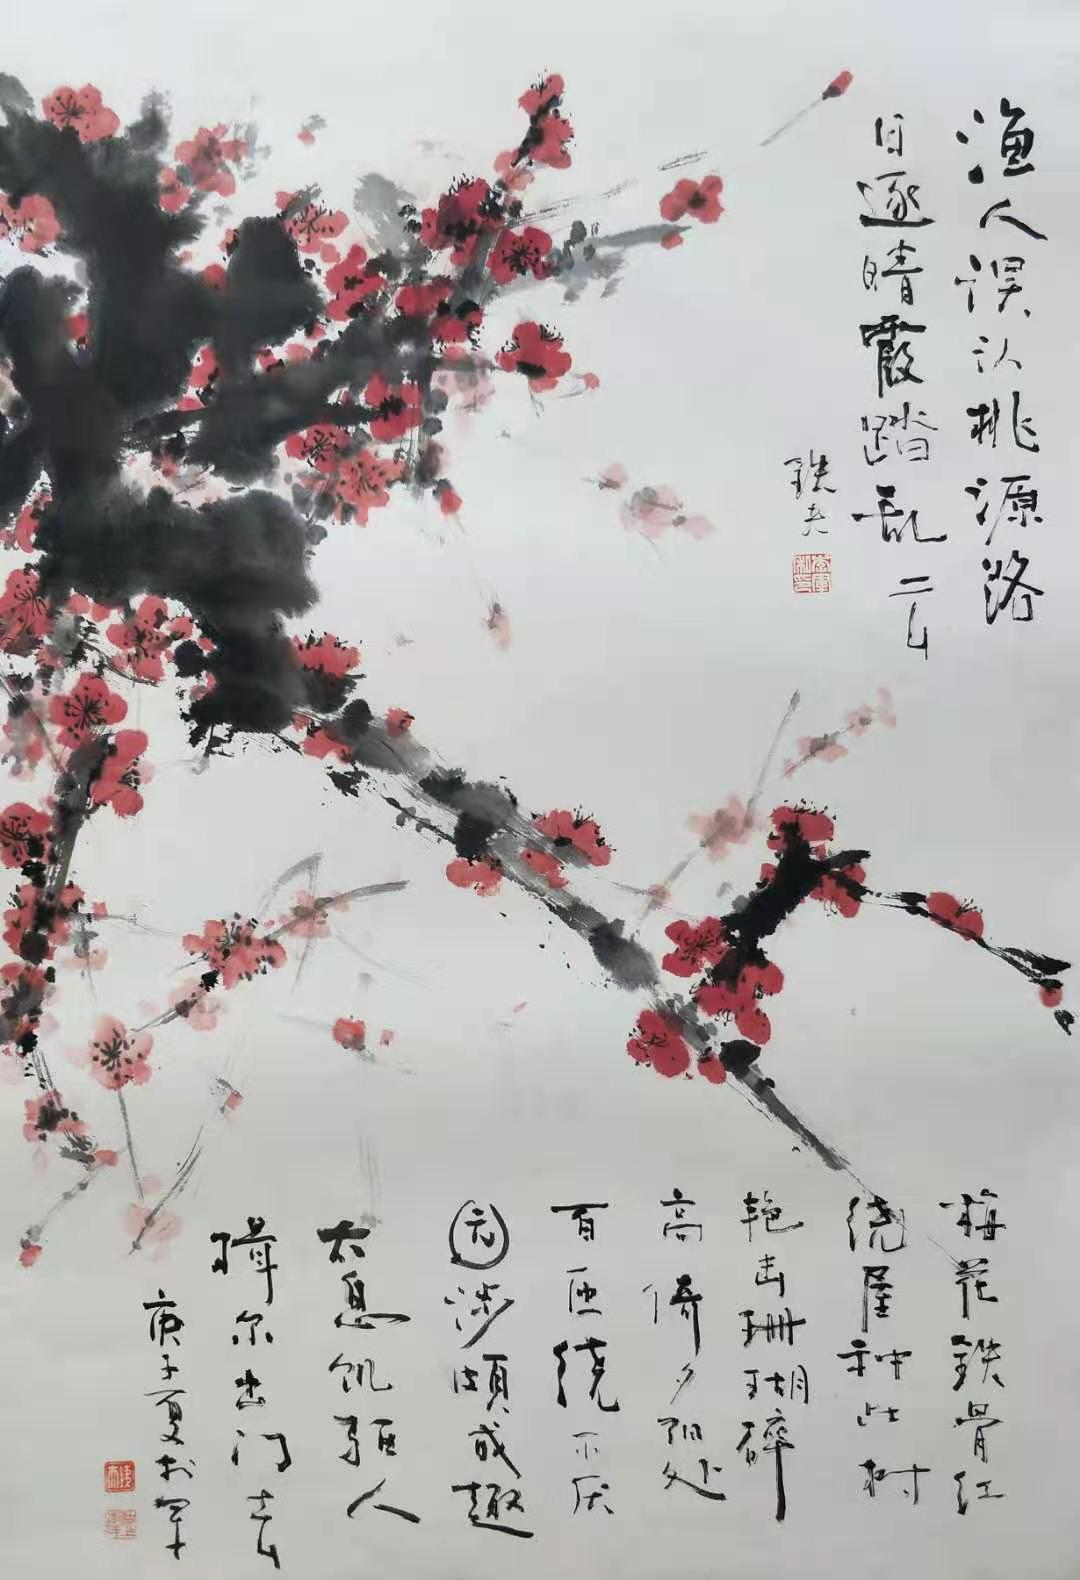 渔人误认桃源路
日逐晴霞踏乱云
铁夫
梅花铁骨红
绕屋种此树
艳击珊瑚碎
高倚夕阳处
百匝绕不厌
园涉颇成趣
太息饥驱人
揖尔出门去
庚子夏